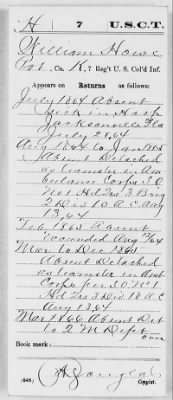 H 7 U.S.C.T.
William Howe
Pvt., Co. K, 7 Reg't U. S. Col'd Inf.
Appears on Returns as follows:
July 1864 Absent
Sick in Hosp
Jacksonville Fla
July 28, 64
Aug 1864 to Jan 1865
Absent Detached
as teamster in Am
bulance Corps S.O.
No 1 Hd 2nd 3 Brig
2 Div 10 A C Aug
13, 64
Feb 1865 Absent
Aug 17/64
Mar to Dec 1865
Absent Detached
as teamster in Amb
Corps per S O No 1
Hd 2nd 3 Div 18 A C
Aug 13 64
Mar 1866 Absent Det
to Q M Dept
Book mark:
(546) Copyist.